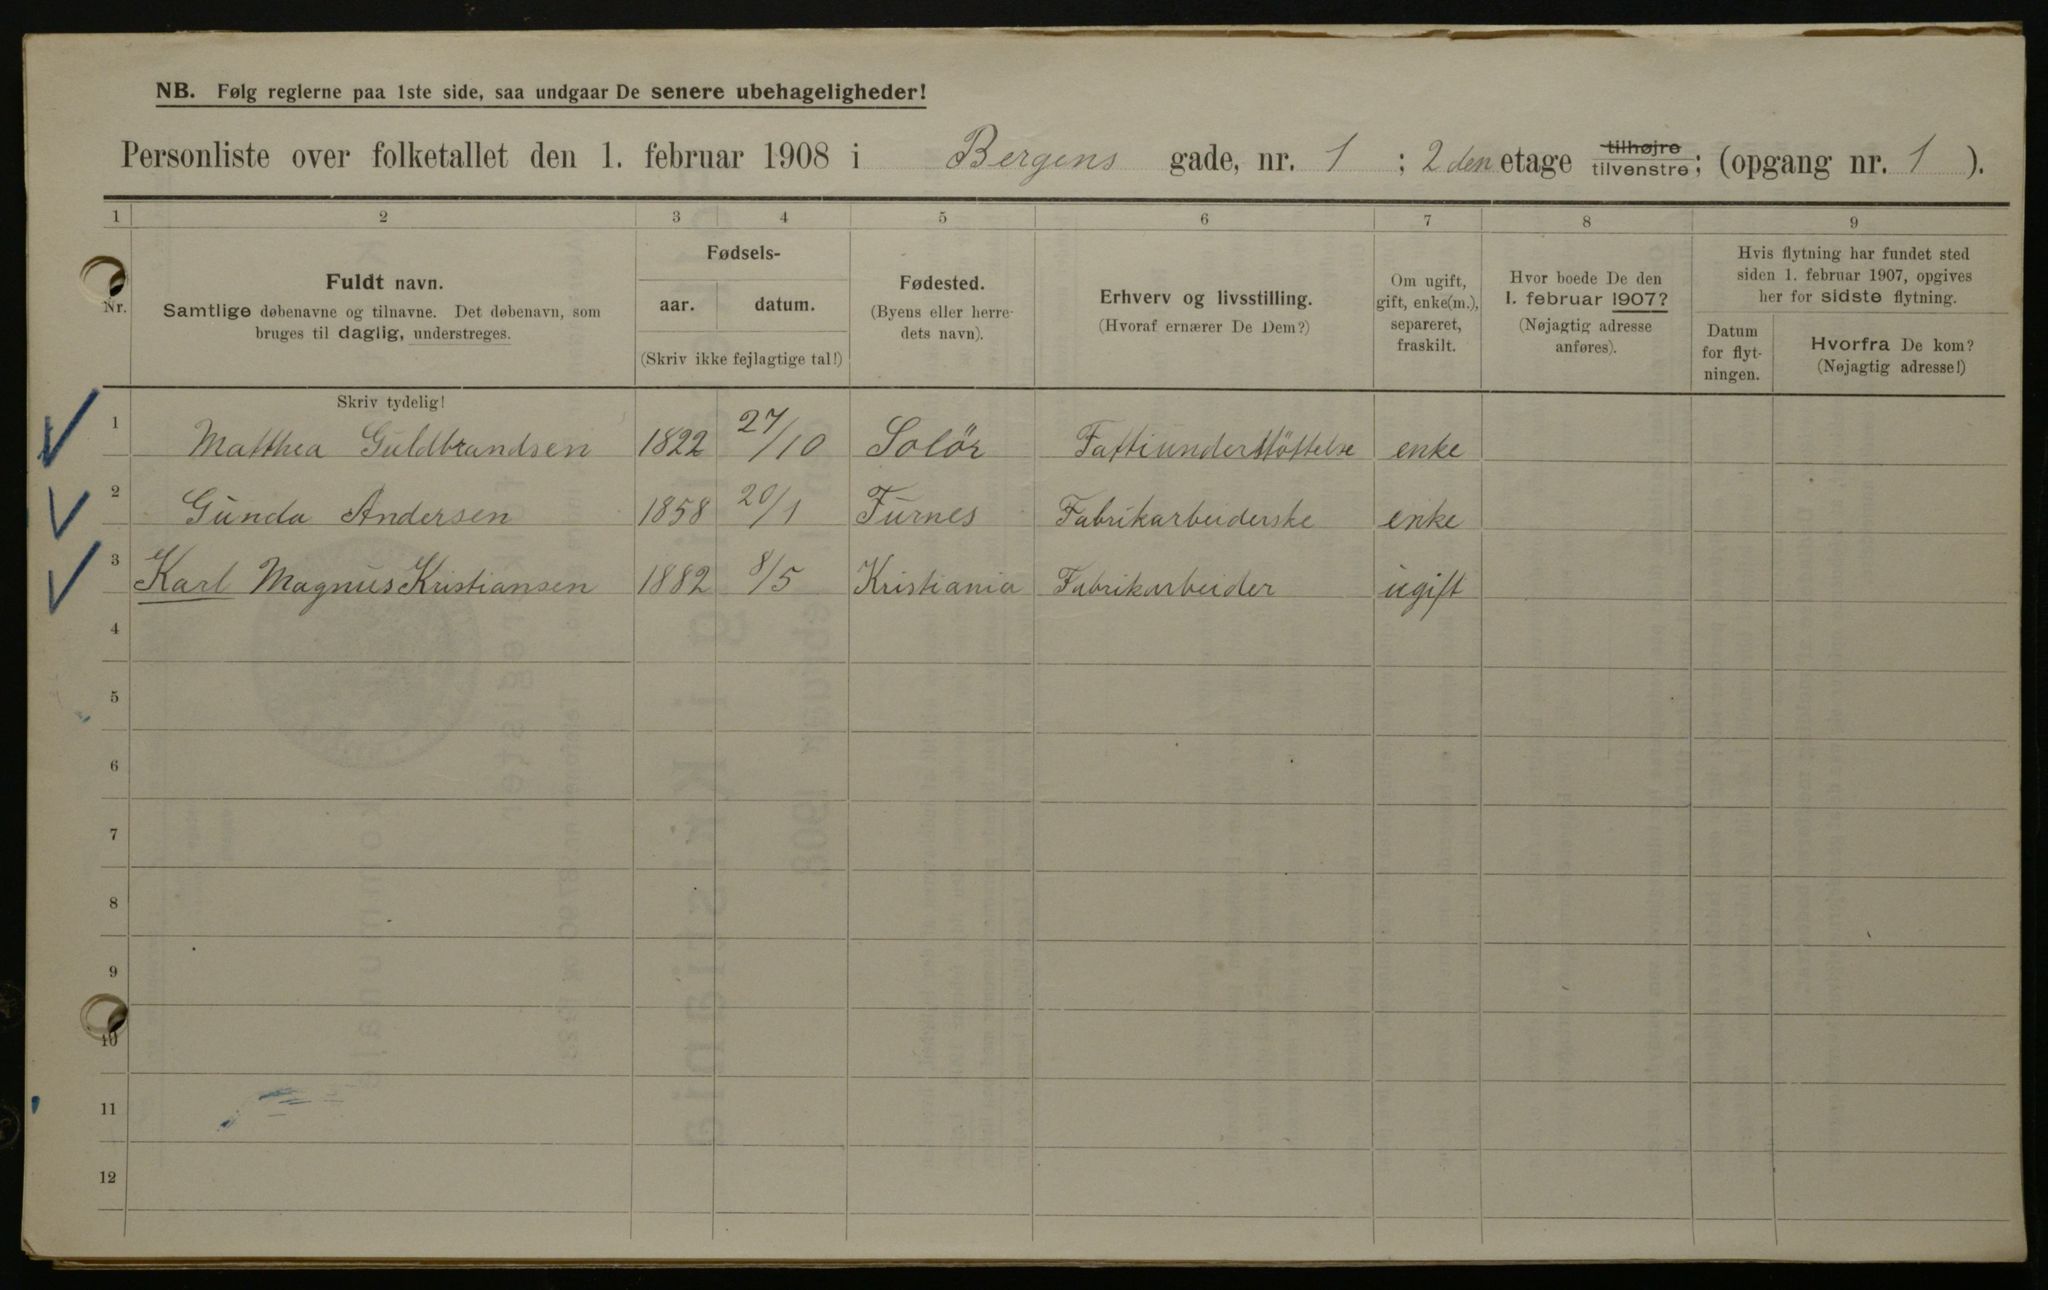 NB. Følg reglerne paa 1ste side, saa undgaar De senere ubehageligheder!
Personliste over folketallet den 1. februar 1908 i Bergens gade, nr. 1 ; 2den etage tilhøjre tilvenstre; (opgang nr. 1 ).
1 2 3 4 5 6 7 8 9
Nr.
Fuldt navn.
Samtlige døbenavne og tilnavne. Det døbenavn, som
bruges til daglig, understreges.
Fødsels-
aar. datum.
(Skriv ikke fejlagtige tal!)
Fødested.
(Byens eller herre-
dets navn).
Erhverv og livsstilling.
(Hvoraf ernærer De Dem?)
Om ugift,
gift, enke(m.),
separeret,
fraskilt.
Hvor boede De den
1. februar 1907?
(Nøjagtig adresse
anføres).
Hvis flytning har fundet sted
siden 1. februar 1907, opgives
her for sidste flytning.
Datum
for flyt-
ningen.
Hvorfra De kom?
(Nøjagtig adresse!)
Skriv tydelig!
1 Matthea Guldbrandsen 1822 27/10 Solör Fattiunderstöttelse enke
2 Gunda Andersen 1858 20/1 Furnes Fabrikarbeiderske enke
3 Karl Magnus Kristiansen 1882 8/5 Kristiania Fabrikarbeider ugift
4
5
6
7
8
9
10
11
12